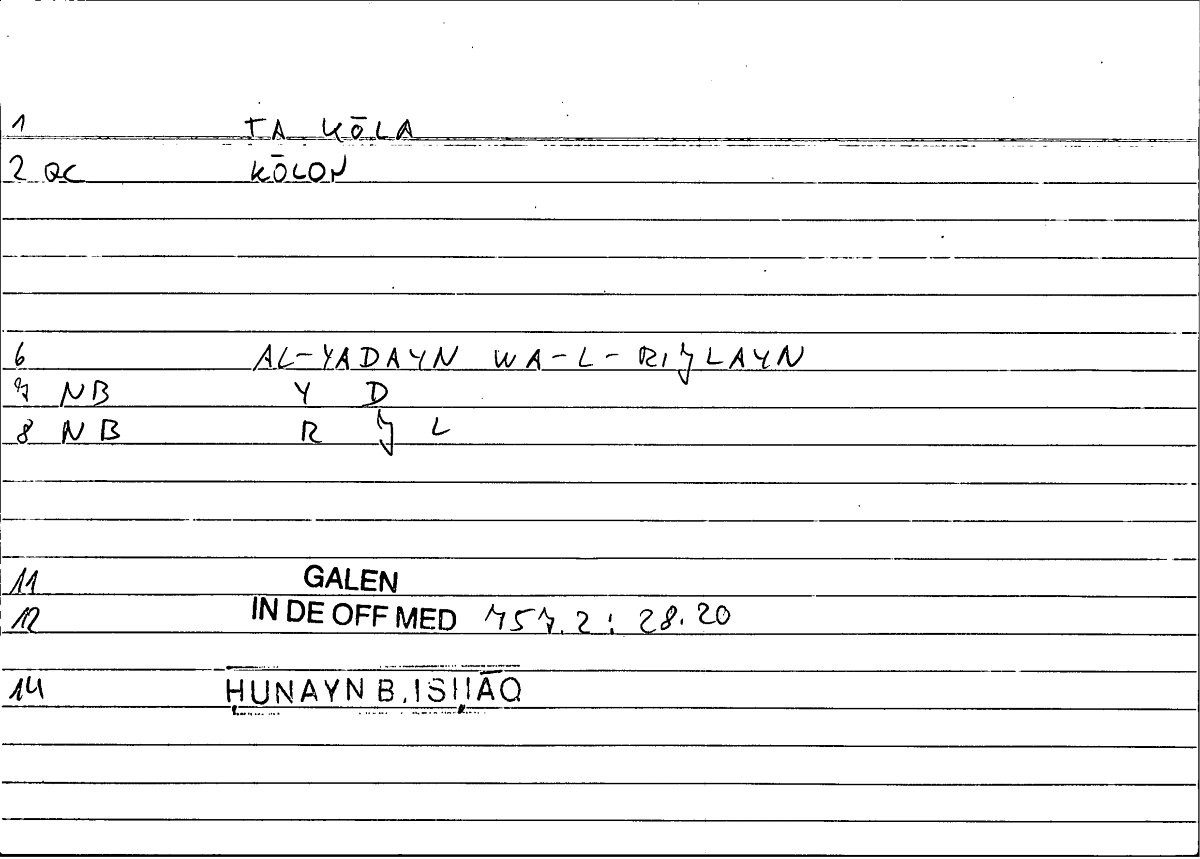 1 TA KŌLA
2 QC KŌLON
6 AL-YADAYN WA-L-RIJLAYN
7 NB Y D
8 NB R J L
11 GALEN
12 IN DE OFF MED 757.2 : 28.20
14 ḤUNAYN B. ISḤĀQ